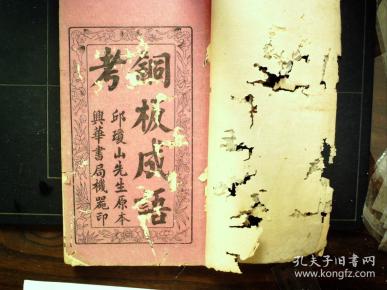 銅板成語
考
邱瓊山先生原本
興華書局機器印
孔夫子旧书网